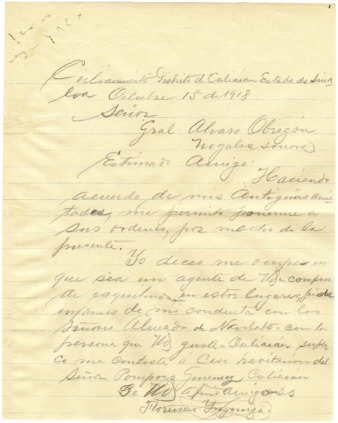 Distrito d Culiacán Estado de Sina
loa Octubre 15 de 1918.
Señor
Gral Alvaro Obregón
Nogales Sonora
Estimado Amigo:
Haciendo
acuerdo de mis Antiguas amis
tades, me permito ponerme a
sus ordenes, por medio de la
presente.
Yo deceo me ocupe en
que sea un agente de Ud compra
de en estos lugares, pida
informes de mi conducta con los
Señores Almada de Navolato. con la
persona que Ud guste Culiacan
me conteste a Casa habitacion del
Señor Culiacán
De Ud Afmo amigo SS
Florencio